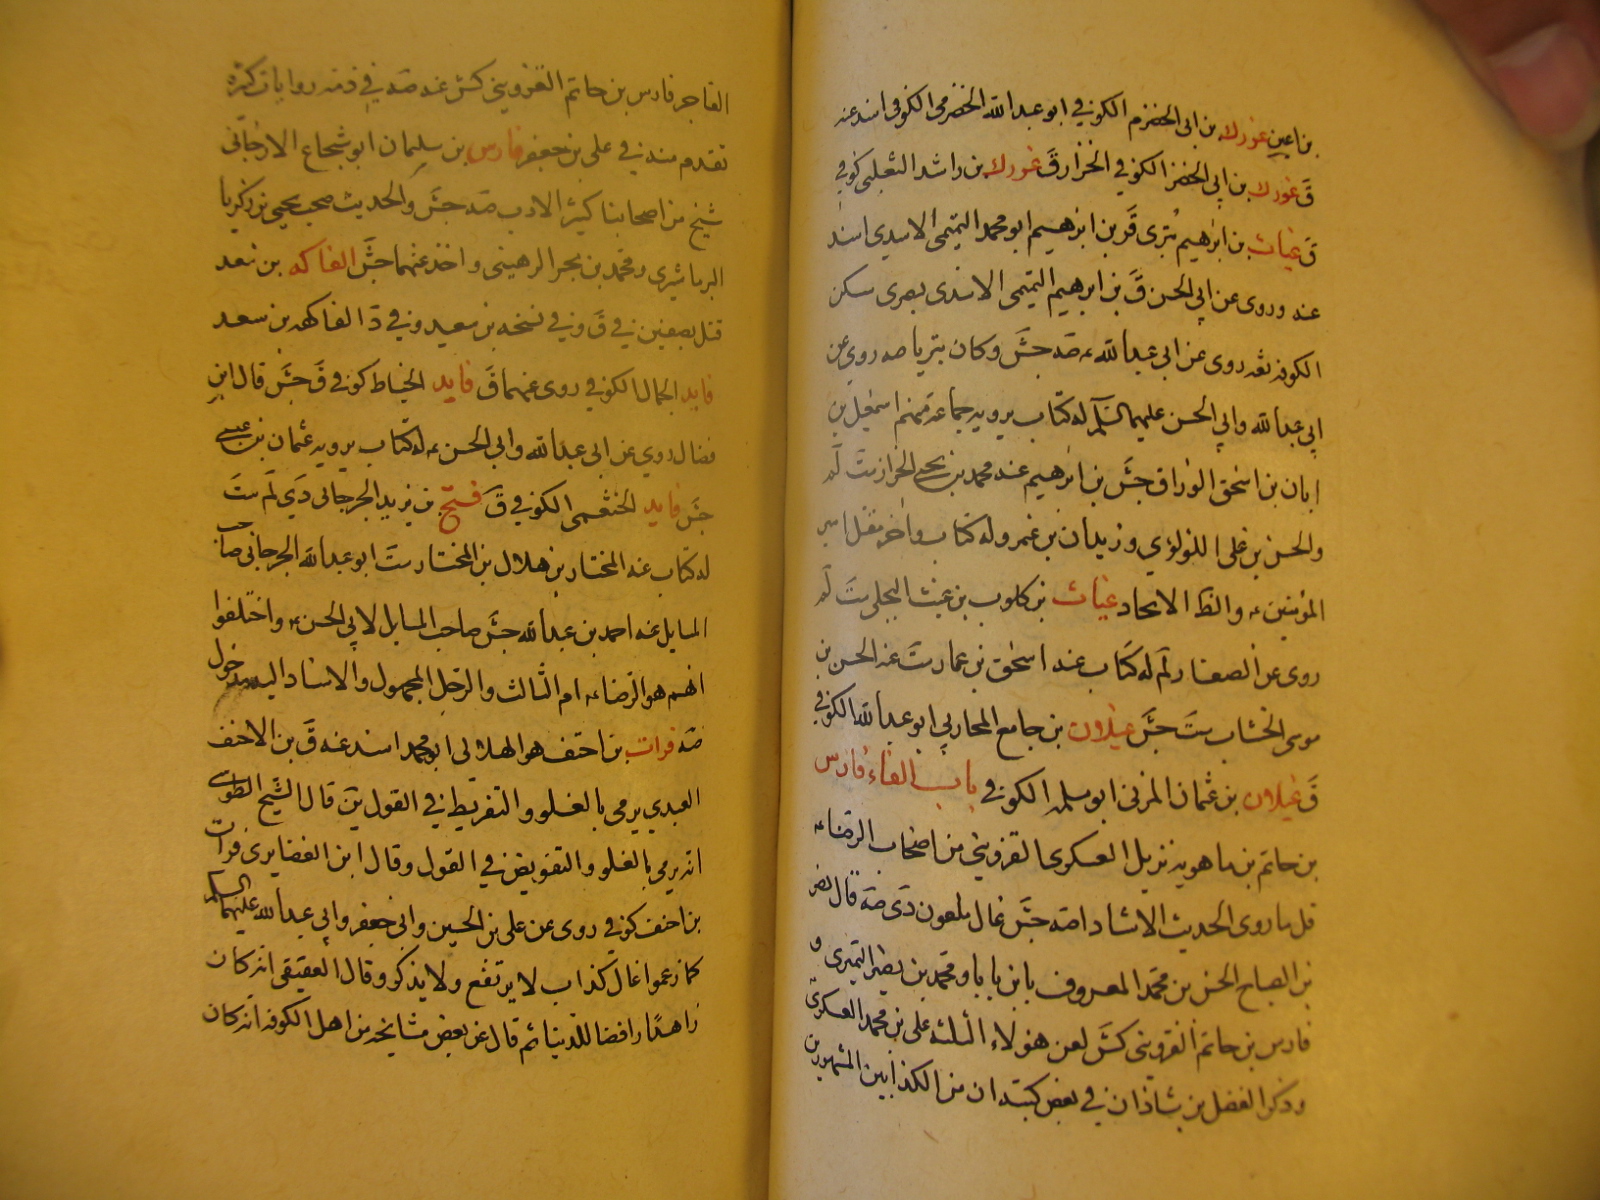 بن اعين غورك بن ابى الخضرم الكوفي ابو عبد الله الخضرمى الكوفي اسند عنه
ق غورك بن ابي الخضر الكوفي الخزاز ق غورك بن راشد الثعلبى كوفي
ق غياث بن ابرهيم بترى قر بن ابرهيم ابو محمد التميمى الاسدي اسند
عنه وروى عن ابي الحسن ق بن ابرهيم التميمى الاسدى بصرى سكن
الكوفه ثقه روى عن ابى عبد الله ع صه جش وكان بتريا صه روى عن
ابي عبد الله وابي الحسن عليهما السلم له كتاب يرويه جماعة منهم اسمعيل بن
ابان بن اسحق الوراق جش بن ابرهيم عنه محمد بن يحيى الخزاز ست لم
والحسن بن على اللؤلؤي وزيدان بن عمر وله كتاب واخر مقتل امير
المؤمنين ع والظ الاتحاد غياث بن كلوب بن غيث البجلى ست لم
روى عن الصفار لم له كتاب عنه اسحق بن عمار ست عنه الحسن بن
موسى الخشاب ست جش غيلان بن جامع المحاربي ابو عبد الله الكوفي
ق غيلان بن عثمان المزنى ابو سلمه الكوفي باب الفاء فارس
بن حاتم بن ماهويه نزيل العسكر القزويني من اصحاب الرضا ع
قل ما روى الحديث الا شاذا صه جش غال ملعون دى صه قال نصر
بن الصباح الحسن بن محمد المعروف بابن بابا ومحمد بن نصير النميرى و
فارس بن حاتم القزوينى كش لعن هؤلاء الثلثه على بن محمد العسكرى
وذكر الفضل بن شاذان في بعض كتبه ان من الكذابين المشهورين
الفاجر فارس بن حاتم القزويني كش عنه صه في ذمه روايات كثيره
تقدم منه في على بن جعفر فارس بن سليمان ابو شجاع الارجانى
شيخ من اصحابنا كثير الادب صه جش والحديث صحب يحيى بن زكريا
ومحمد بن بحر الرهينى واخذ عنهما جش الفاكه بن سعد
قتل بصفين ي في ق وفي نسخه بن سعيد وفي د الفاكهه بن سعد
فايد الجمال الكوفي روى عنهما ق فايد الخياط كوفي ق جش قال ابن
فضال روي عن ابى عبد الله وابى الحسن ع له كتاب يرويه عثمان بن عيسى
جش فايد الخثعمى الكوفي ق فتح بن يزيد الجرجانى دى لم ست
له كتاب عنه المختار بن هلال بن المختار ست ابو عبد الله الجرجانى صاحب
المسايل عنه احمد بن عبد الله جش صاحب المسايل لابي الحسن ع واختلفوا
ايهم هو الرضا ع ام الثالث والرجل مجهول والاسناد اليه مدخول
صه فرات بن احنف هو الهلالى ابو محمد اسند عنه ق بن الاحنف
العبدي يرمى بالغلو والتفريط في القول ين قال الشيخ الطوسى
انه يرمى بالغلو والتفويض في القول وقال ابن الغضايرى فرات
بن احنف كوفي روى عن على بن الحسين وابى جعفر وابي عبد الله عليهم السلم
كما زعموا غال كذاب لا يرتفع ولا يذكر وقال العقيقى انه كان
زاهدا رافضا للدنيا ثم قال عن بعض مشايخه من اهل الكوفه انه كان